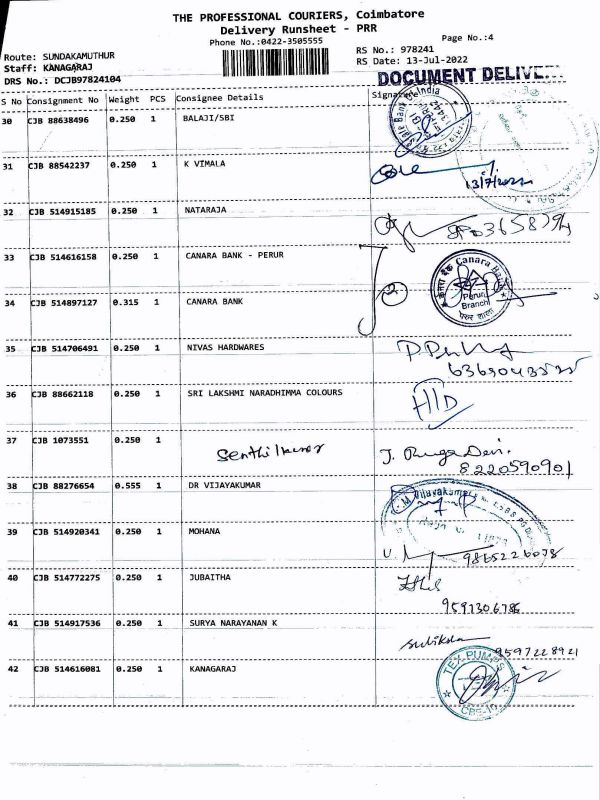 THE PROFESSIONAL COURIERS, Coimbatore
Delivery Runsheet - PRR
Phone No.:0422-3505555
Page No.:4
Route: SUNDAKAMUTHUR
RS No.: 978241
Staff: KANAGARAJ
RS Date: 13-Jul-2022
DRS No.: DCJB97824104
DOCUMENT DELIVE
S No Consignment No Weight PCS Consignee Details Signature
30 CJB 88638496 0.250 1 BALAJI/SBI
State Bank of India
31 CJB 88542237 0.250 1 K VIMALA
13/7/2022
32 CJB 514915185 0.250 1 NATARAJA
33 CJB 514616158 0.250 1 CANARA BANK - PERUR
Canara Bank
Perur
Branch
34 CJB 514897127 0.315 1 CANARA BANK
35 CJB 514706491 0.250 1 NIVAS HARDWARES
36 CJB 88662118 0.250 1 SRI LAKSHMI NARADHIMMA COLOURS
37 CJB 1073551 0.250 1 Senthilkumar
8220590901
38 CJB 88276654 0.555 1 DR VIJAYAKUMAR
39 CJB 514920341 0.250 1 MOHANA
9865226078
40 CJB 514772275 0.250 1 JUBAITHA
9591306786
41 CJB 514917536 0.250 1 SURYA NARAYANAN K
9597228921
42 CJB 514616081 0.250 1 KANAGARAJ
TEX PUMPS
CBE-10